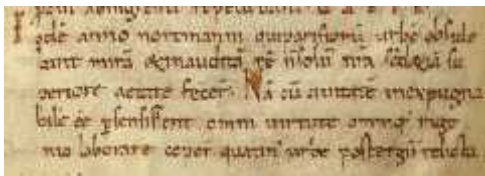 odē anno nortmanni qui parisiorū urbē obside
bant mirā & inauditā rē n̄ solū nr̄a sed &iā su
periore aetate fecer̄. Nā cū ciuitatē inexpugna
bilē eē p̱sensissent omni uirtute omniq; inge
nio laborare ceper̄ quatin' urbe post tergū relicta